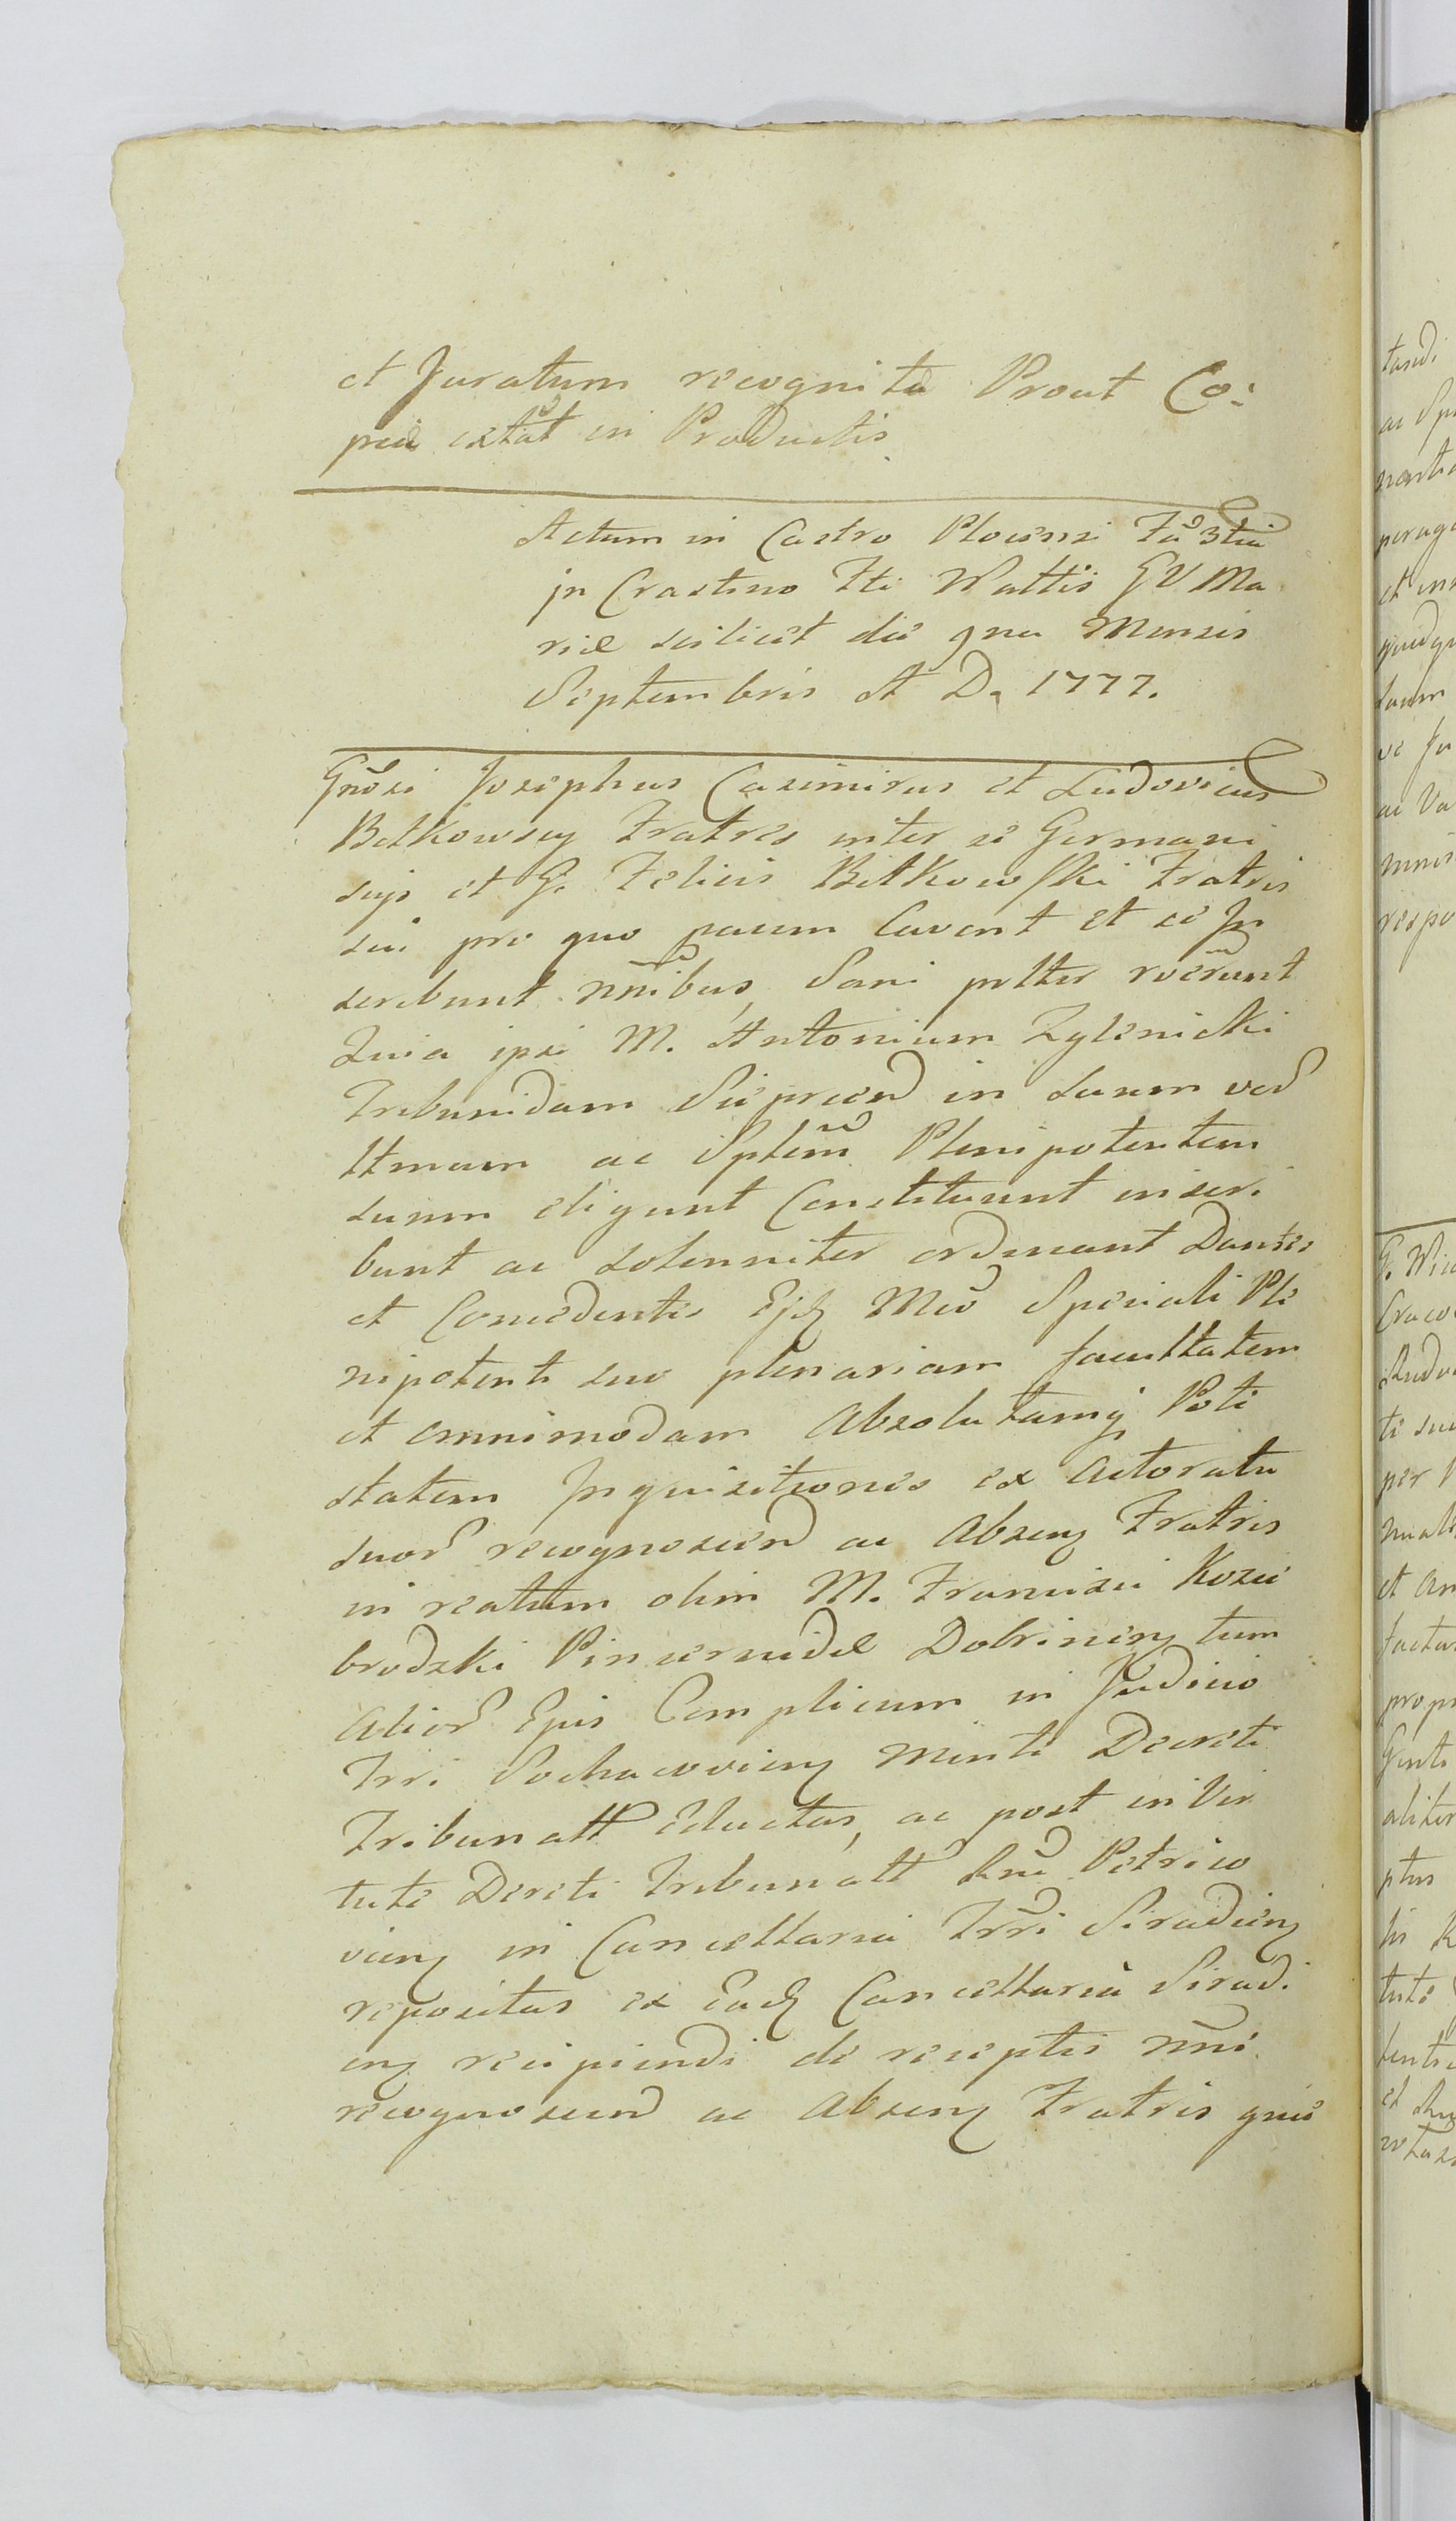 et Juratum recognita Prout Co:
pia extāt in Productis
Actum in Castro Plocensi Fa 3tia
in Crastino Fti Nattis GV Ma
riæ scilicet die 9na Mensis
Septembris A D. 1777.
Gnōsi Josephus Casimirus et Ludovicus
Betkowscy Fratres inter se Germani
suis et G. Felicis Bitkowski Fratris
sui pro quo Cavent et se In
scribunt nnibus, Sani pttter rcērunt
Quia ipsi M. Antonium Zylenicki
Tribunidam Sieprcen in suum ver
ttmum ac Spłem Plenipotentem
suum eligunt Constituunt inscri
bunt ac solenniter ordinant Dantes
et Concedentes Ejd Mco Speciali Ple
nipotenti suo plenariam facultatem
et omnimodam Absolutamq Pote
statem Inquisitiones ex Actoratu
suor recognoscend ac Absen Fratris
in reatum olim M. Francisci Kozie
brodzki Pincernidæ Dobrinen tum
Alior Ejus Complicum in Judicio
Trri Sochacovien Mente Decreti
Tribunatt eductas, ac post in Vir
tute Dereti Tribunatt Rni Petrico
vien in Cancellaria Trri Siradien
repositas ex Ead Cancellaria Siradi
en recipiendi de receptis nni
recognoscend ac Absen Fratris
tandi
ac
et
G.
per
et An